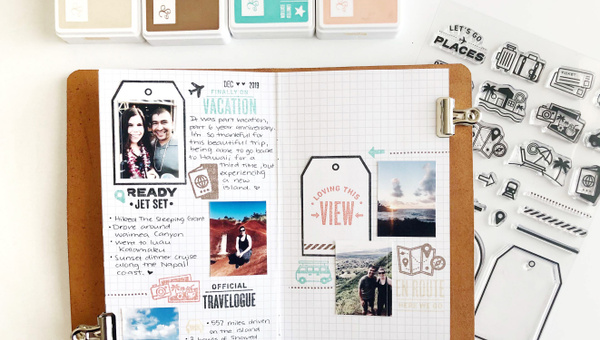 LET'S GO
PLACES
DEC ♥♥ 2019
FINALLY ON
VACATION
It was part vacation,
part 6 year anniversary.
I'm so thankful for
this beautiful trip,
being able to go back
to Hawaii, for a
third time, but
experiencing
a new
island.
READY
• JET SET •
• Hiked The Sleeping Giant
• Drove around
Waimea Canyon
• Went to luau
Kalamaku
• Sunset dinner cruise
along the Napali
coast. ♥
OFFICIAL
TRAVELOGUE
• 557 miles driven
on the island
LOVING THIS
VIEW
EN ROUTE